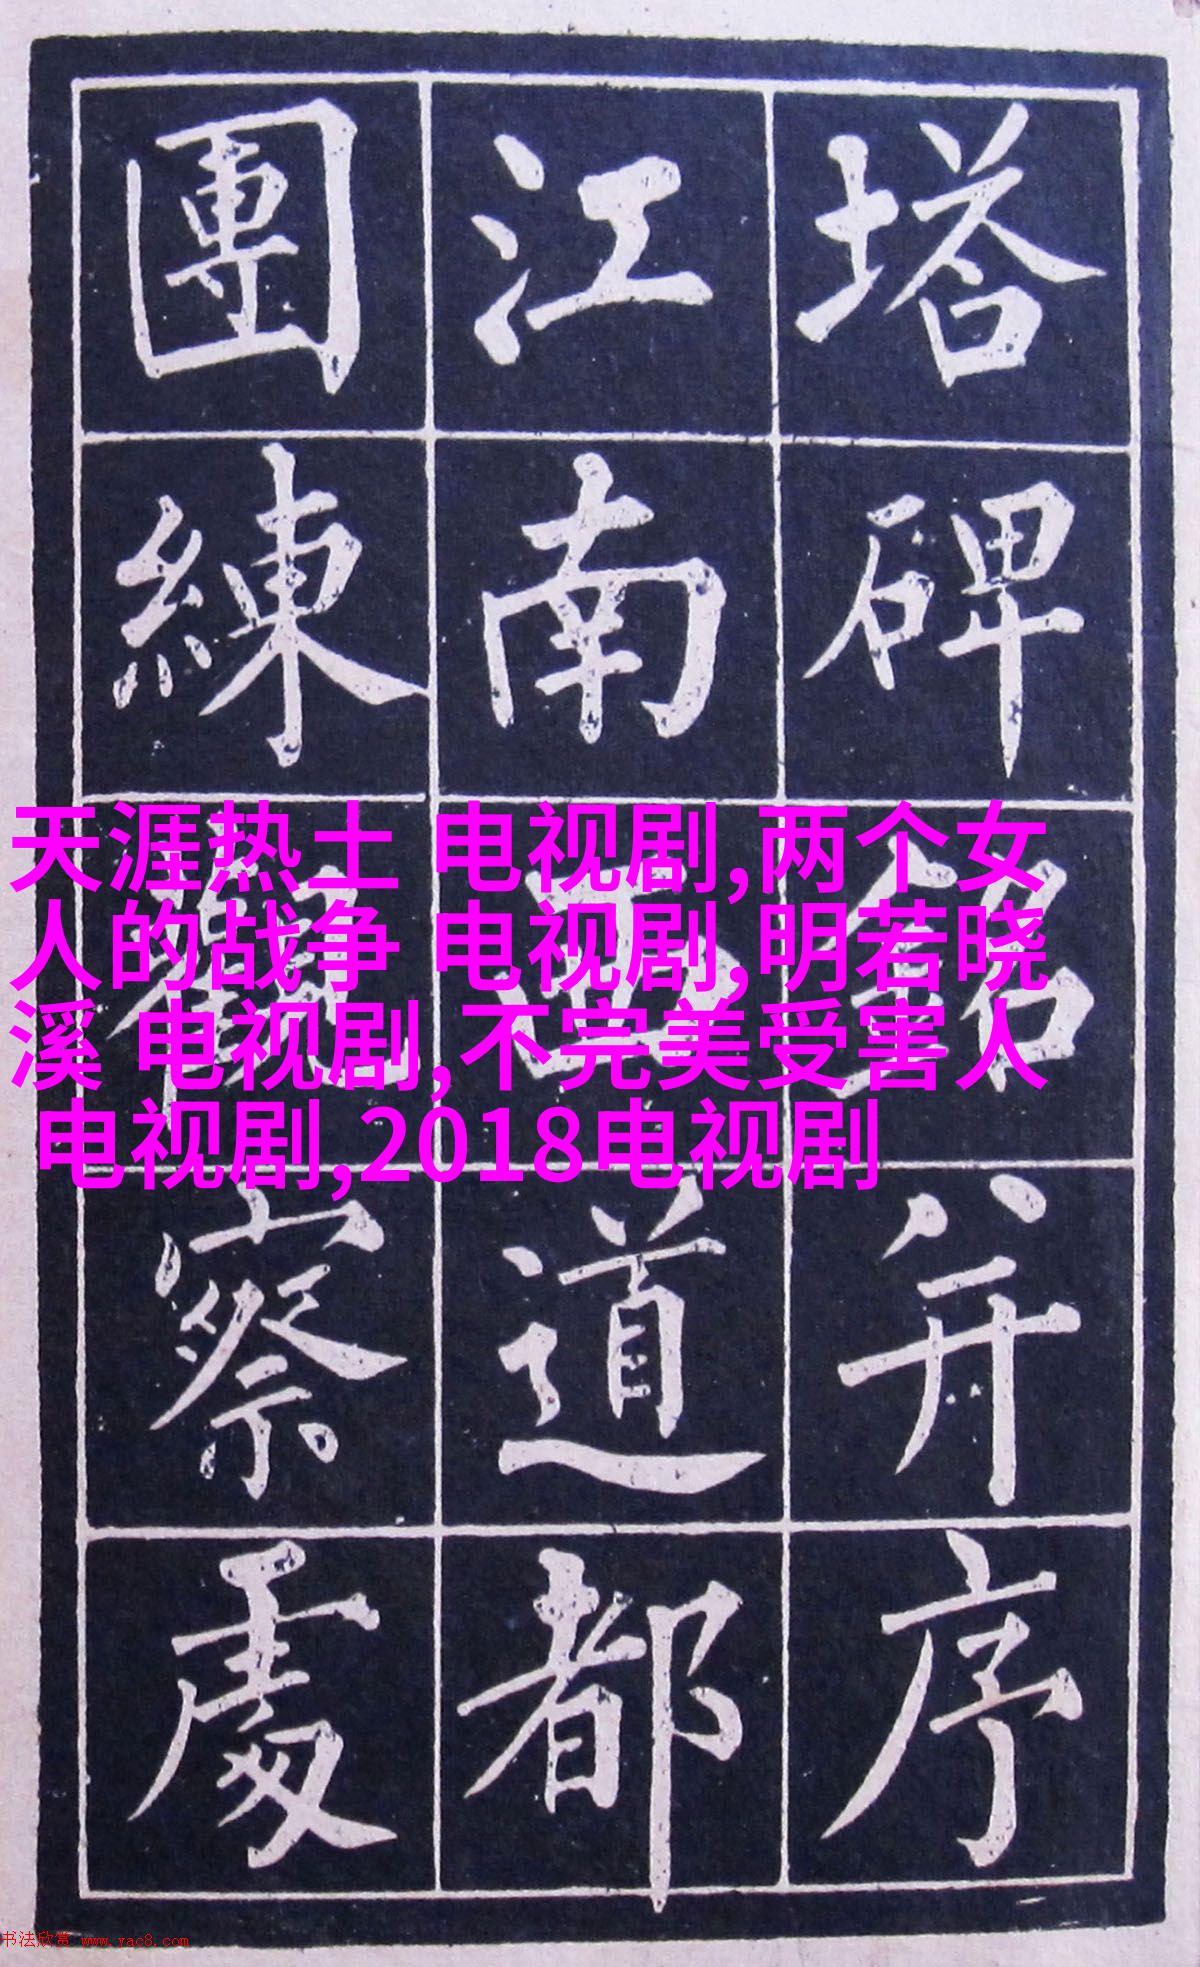 塔碑銘并序
江南西道都
團練觀察處
天涯热土 电视剧,两个女
人的战争 电视剧,明若晓
溪 电视剧,不完美受害人
电视剧,2018电视剧
书法欣赏 www.yac8.com